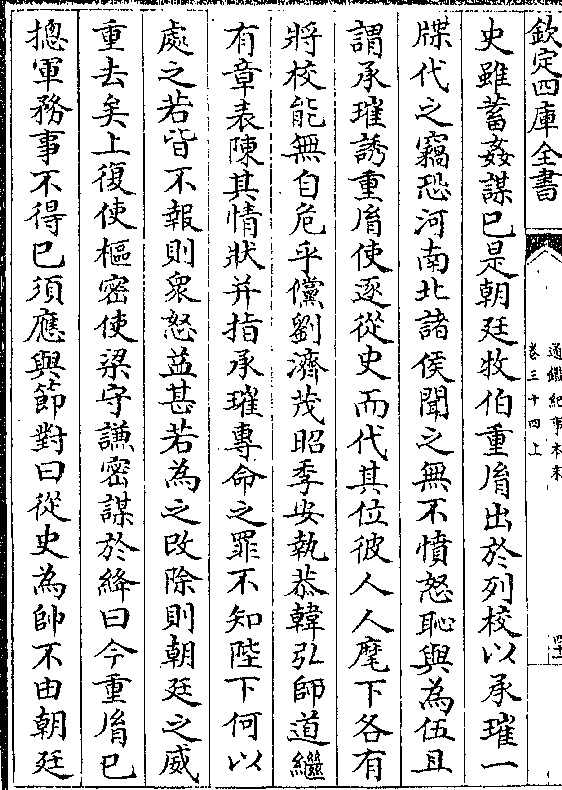 欽定四庫全書
通鑑紀事本末
卷三十四上
史雖蓄姦謀已是朝廷牧伯重𦙍出於列校以承璀一
牒代之竊恐河南北諸侯聞之無不憤怒恥與為伍且
謂承璀誘重𦙍使逐從史而代其位彼人人麾下各有
將校能無自危乎儻劉濟茂昭季安執恭韓弘師道繼
有章表陳其情狀并指承璀專命之罪不知陛下何以
處之若皆不報則衆怒益甚若為之改除則朝廷之威
重去矣上復使樞密使梁守謙密謀於絳曰今重𦙍已
摠軍務事不得已須應與節對曰從史為帥不由朝廷